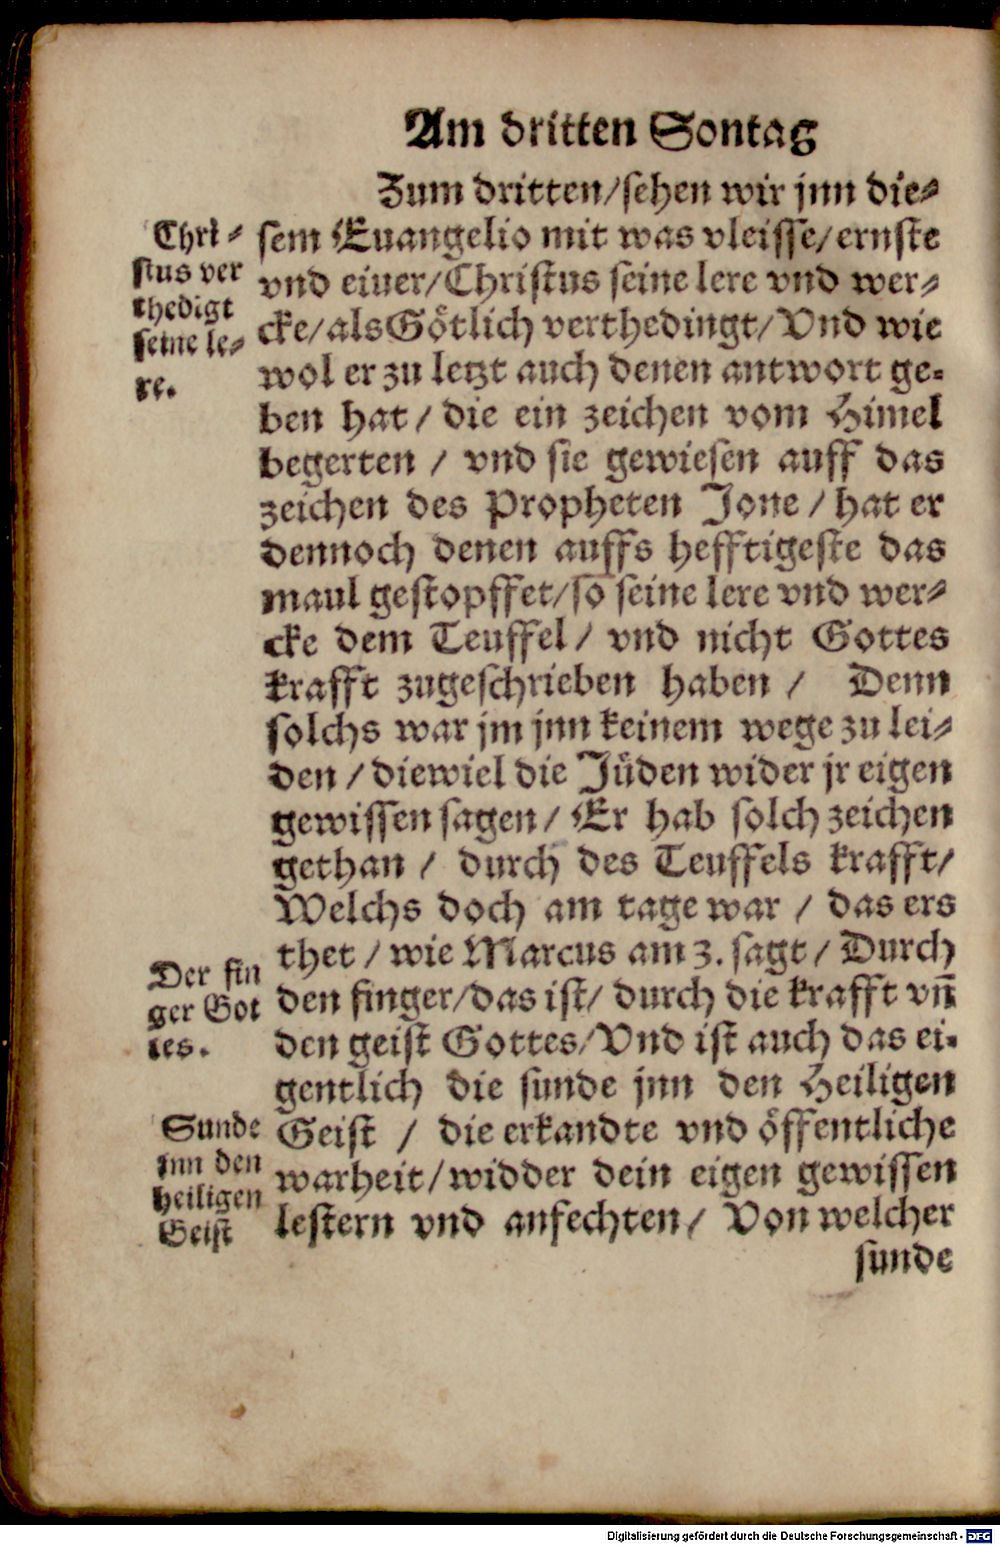 Am dritten Sontag
Zum dritten/sehen wir jnn die⸗
sem Euangelio mit was vleisse/ernste
vnd eiuer/Christus seine lere vnd wer⸗
cke/als Götlich verthedingt/Vnd wie
wol er zu letzt auch denen antwort ge⸗
ben hat / die ein zeichen vom Himel
begerten / vnd sie gewiesen auff das
zeichen des Propheten Jone / hat er
dennoch denen auffs hefftigeste das
maul gestopffet/so seine lere vnd wer⸗
cke dem Teuffel / vnd nicht Gottes
krafft zugeschrieben haben / Denn
solchs war jm jnn keinem wege zu lei⸗
den / diewiel die Jüden wider jr eigen
gewissen sagen / Er hab solch zeichen
gethan / durch des Teuffels krafft/
Welchs doch am tage war / das ers
thet / wie Marcus am 3. sagt / Durch
den finger/das ist/ durch die krafft vñ
den geist Gottes/Vnd ist auch das ei⸗
gentlich die sunde jnn den Heiligen
Geist / die erkandte vnd öffentliche
warheit/widder dein eigen gewissen
lestern vnd anfechten/ Von welcher
sunde
Chri⸗
stus ver
thedigt
seine le⸗
re.
Der fin
ger Got
tes.
Sunde
jnn den
heiligen
Geist
Digitalisierung gefördert durch die Deutsche Forschungsgemeinschaft - DFG